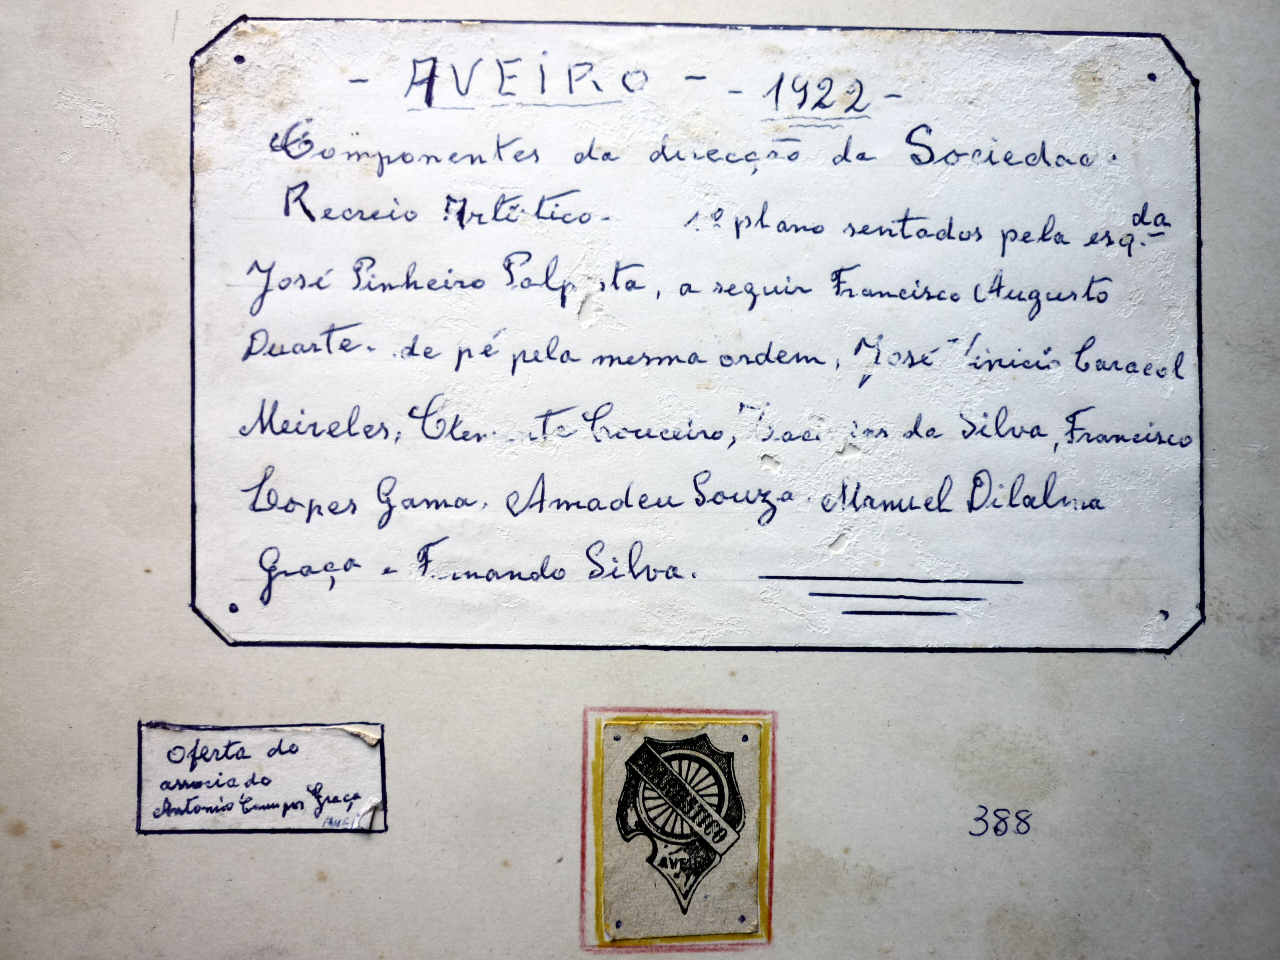 - AVEIRO - - 1922 -
Componentes da direcção da Sociedade
Recreio Artístico. 1º plano sentados pela esq.da
José Pinheiro Palpista, a seguir Francisco Augusto
Duarte. de pé pela mesma ordem, José Caracol
Meireles, Clemente Couceiro, da Silva, Francisco
Lopes Gama, Amadeu Souza. Manuel Dilalma
Graça e Fernando Silva.
Oferta do
associado
Antonio Campos Graça
AVEIRO
388